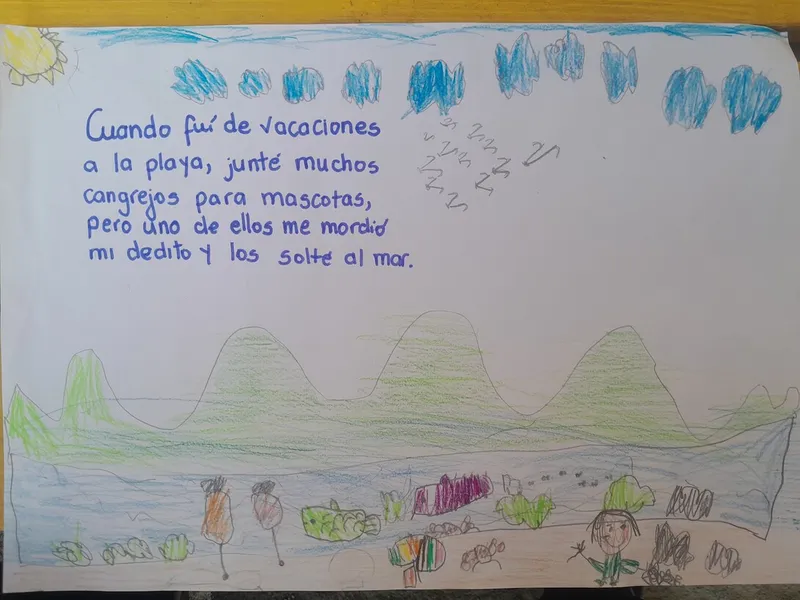 Cuando fuí de vacaciones
a la playa, junté muchos
cangrejos para mascotas,
pero uno de ellos me mordió
mi dedito y los solté al mar.